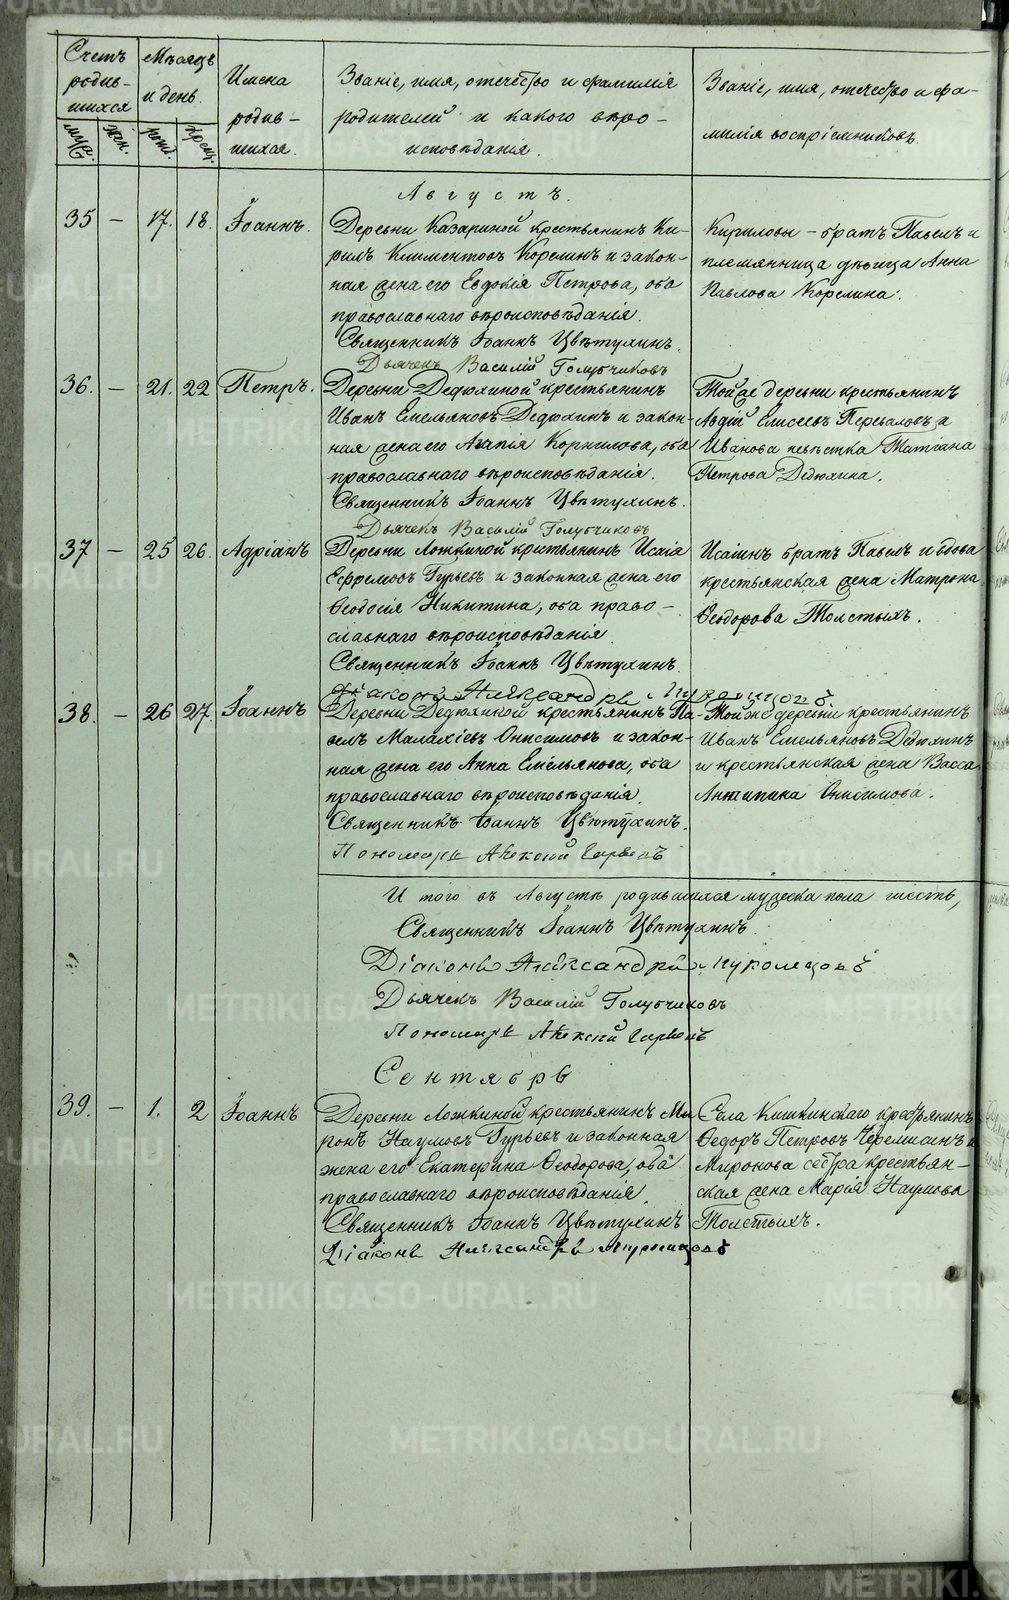 METRIKI.GASO-URAL.RU
Счетъ родив-шихся
Мѣсяцъ и день.
Имена родив-шихся.
Званіе, имя, отечество и фамилія
родителей и какого вѣро-
исповѣданія.
Званіе, имя, отечество и фа-
милія воспріемниковъ.
муж. жен. рожд. крещ.
Августъ.
35 – 17. 18. Іоаннъ.
Деревни Казариной крестьянинъ Ки-
рилъ Климентовъ Корелинъ и закон-
ная жена его Евдокія Петрова, оба
православнаго вѣроисповѣданія.
Священникъ Іоаннъ Цвѣтухинъ.
Дьячекъ Василій Голубчиковъ
Кириловы – братъ Павелъ и
племянница дѣвица Анна
Павлова Корелина.
36. – 21. 22 Петръ.
Деревни Дедюхиной крестьянинъ
Иванъ Емельяновъ Дедюхинъ и закон-
ная жена его Агапія Корнилова, оба
православнаго вѣроисповѣданія.
Священникъ Іоаннъ Цвѣтухинъ.
Дьячекъ Василій Голубчиковъ
Той же деревни крестьянинъ
Авдій Елисеевъ Переваловъ и
Иванова невѣстка Татіана
Петрова Дедюхина.
37 – 25 26. Адріанъ
Деревни Ложкиной кретьянинъ Исаія
Ефремовъ Гурьевъ и законная жена его
Ѳеодосія Никитина, оба право-
славнаго вѣроисповѣданія.
Священникъ Іоаннъ Цвѣтухинъ
Діаконъ Александръ
Исаіинъ братъ Павелъ и вдова
крестьянская жена Матрона
Ѳеодорова Толстыхъ.
38. – 26 27. Іоаннъ
Деревни Дедюхиной крестьянинъ Па-
велъ Малахіевъ Онисимовъ и закон-
ная жена его Анна Емельянова, оба
православнаго вѣроисповѣданія.
Священникъ Іоаннъ Цвѣтухинъ.
Пономарь Алексій
Той же деревни крестьянинъ
Иванъ Емельяновъ Дедюхинъ
и крестьянская жена Васса
Антипина Онисимова.
И того въ Августѣ родившихся мужеска пола шесть,
Священникъ Іоаннъ Цвѣтухинъ.
Діаконъ Александръ
Дьячекъ Василій Голубчиковъ
Пономарь Алексій
Сентябрь
39. – 1. 2 Іоаннъ
Деревни Ложкиной крестьянинъ Ми-
ронъ Наумовъ Гурьевъ и законная
жена его Екатерина Ѳеодорова, оба
православнаго вѣроисповѣданія.
Священникъ Іоаннъ Цвѣтухинъ
Діаконъ Александръ
Села Кишкинскаго крестьянинъ
Ѳедоръ Петровъ Черемисинъ и
Миронова сестра крестьян-
ская жена Марія Наумова
Толстыхъ.